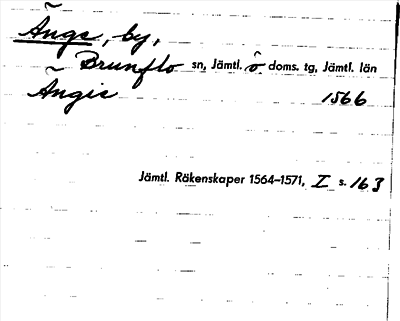 Ãngs, by,
Brunflo sn, Jämtl. ö. doms. tg, Jämtl. län
Ãngis 1566
Jämtl. Räkenskaper 1564–1571, I s. 163